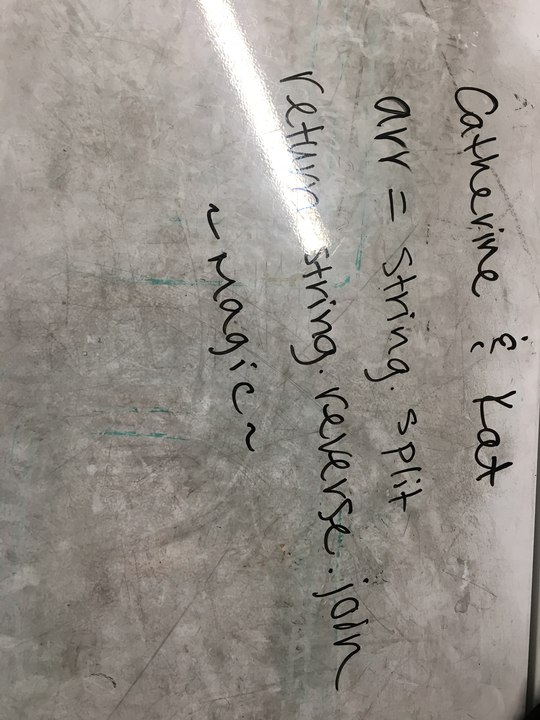 Catherine & Kat
arr = string.split
return string.reverse.join
~ Magic ~